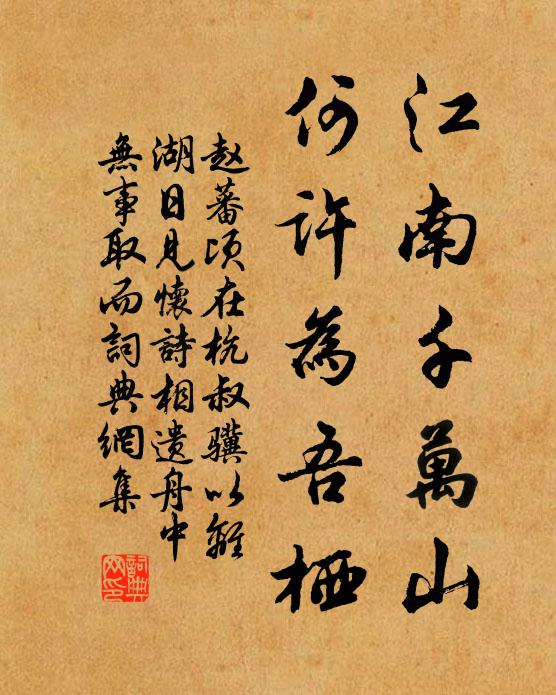 江南千萬山
何許為吾栖
赵蕃頃在杭叔骥以離
湖日見懷詩相遗舟中
無事取而詞典網集
詞典网印